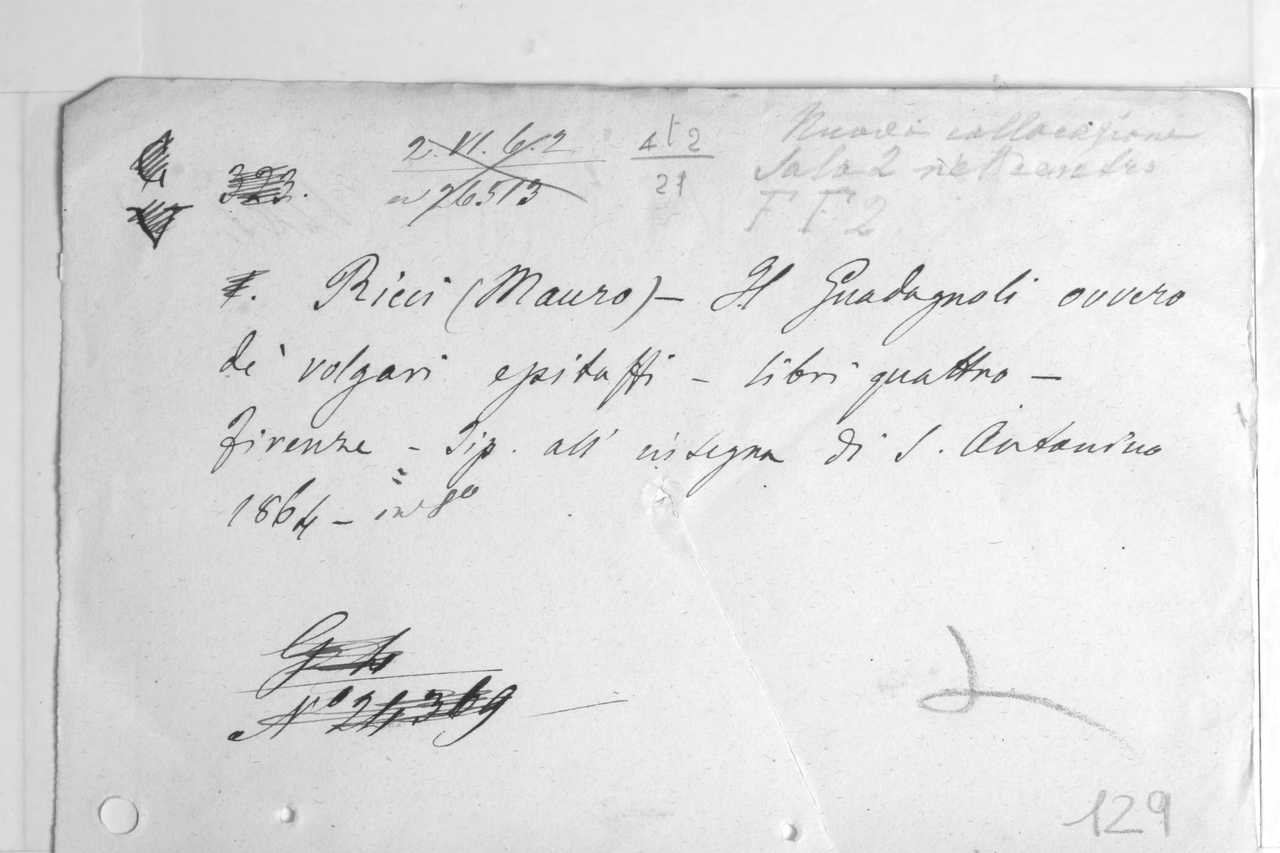 323. 2.VI.6.2 4 t 2 Nuova collocazione
n 26513 21 Sala 2 nel centro
F F 2
Ricci (Mauro) – Il Guadagnoli ovvero
de' volgari epitaffi – libri quattro –
Firenze – Tip. all' insegna di S. Antonino
1864 – in 8º
Nº 24369
129